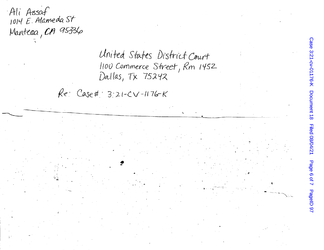 Ali Assaf
1014 E. Alameda St
Manteca, CA 95336
United States District Court
1100 Commerce Street, Rm 1452
Dallas, Tx 75242
Re: Case# 3:21-CV-1176-K
Case 3:21-cv-01176-K Document 18 Filed 09/04/21 Page 6 of 7 PageID 97